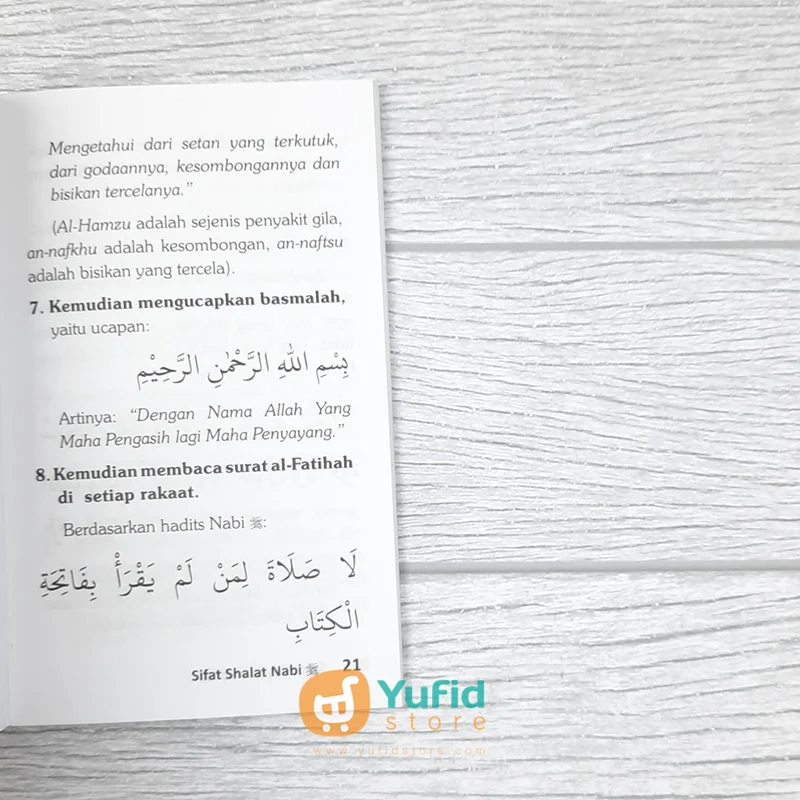 Mengetahui dari setan yang terkutuk,
dari godaannya, kesombongannya dan
bisikan tercelanya.”
(Al-Hamzu adalah sejenis penyakit gila,
an-nafkhu adalah kesombongan, an-naftsu
adalah bisikan yang tercela).
7. Kemudian mengucapkan basmalah,
yaitu ucapan:
بِسْمِ اللهِ الرَّحْمٰنِ الرَّحِيْمِ
Artinya: “Dengan Nama Allah Yang
Maha Pengasih lagi Maha Penyayang.”
8. Kemudian membaca surat al-Fatihah
di setiap rakaat.
Berdasarkan hadits Nabi ﷺ:
لَا صَلَاةَ لِمَنْ لَمْ يَقْرَأْ بِفَاتِحَةِ
الْكِتَابِ
Sifat Shalat Nabi ﷺ 21
Yufid
store
www.yufidstore.com